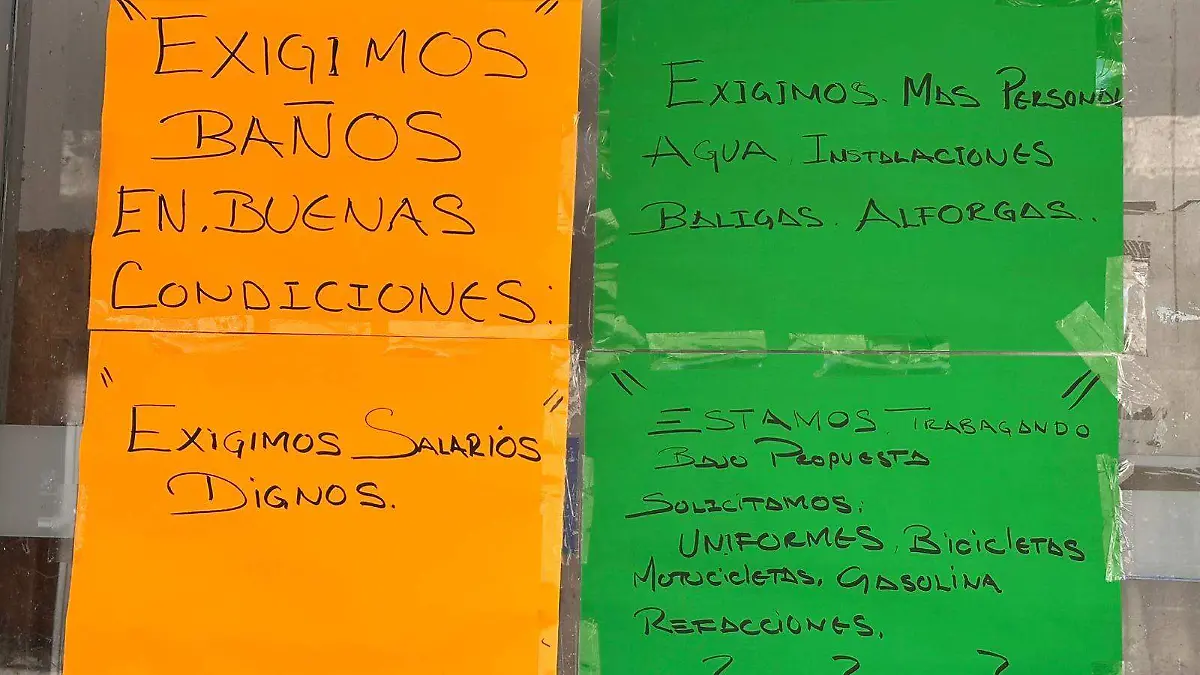 "EXIGIMOS"
BAÑOS
EN. BUENAS
CONDICIONES:
"EXIGIMOS SALARIOS"
DIGNOS.
EXIGIMOS. MAS PERSONAL
AGUA. INSTALACIONES
BALIGAS. ALFORGAS..
" ESTAMOS TRABAGANDO "
BAJO PROPUESTA
SOLICITAMOS:
UNIFORMES. BICICLETAS
MOTOCICLETAS. GASOLINA
REFACCIONES.
? ? ?